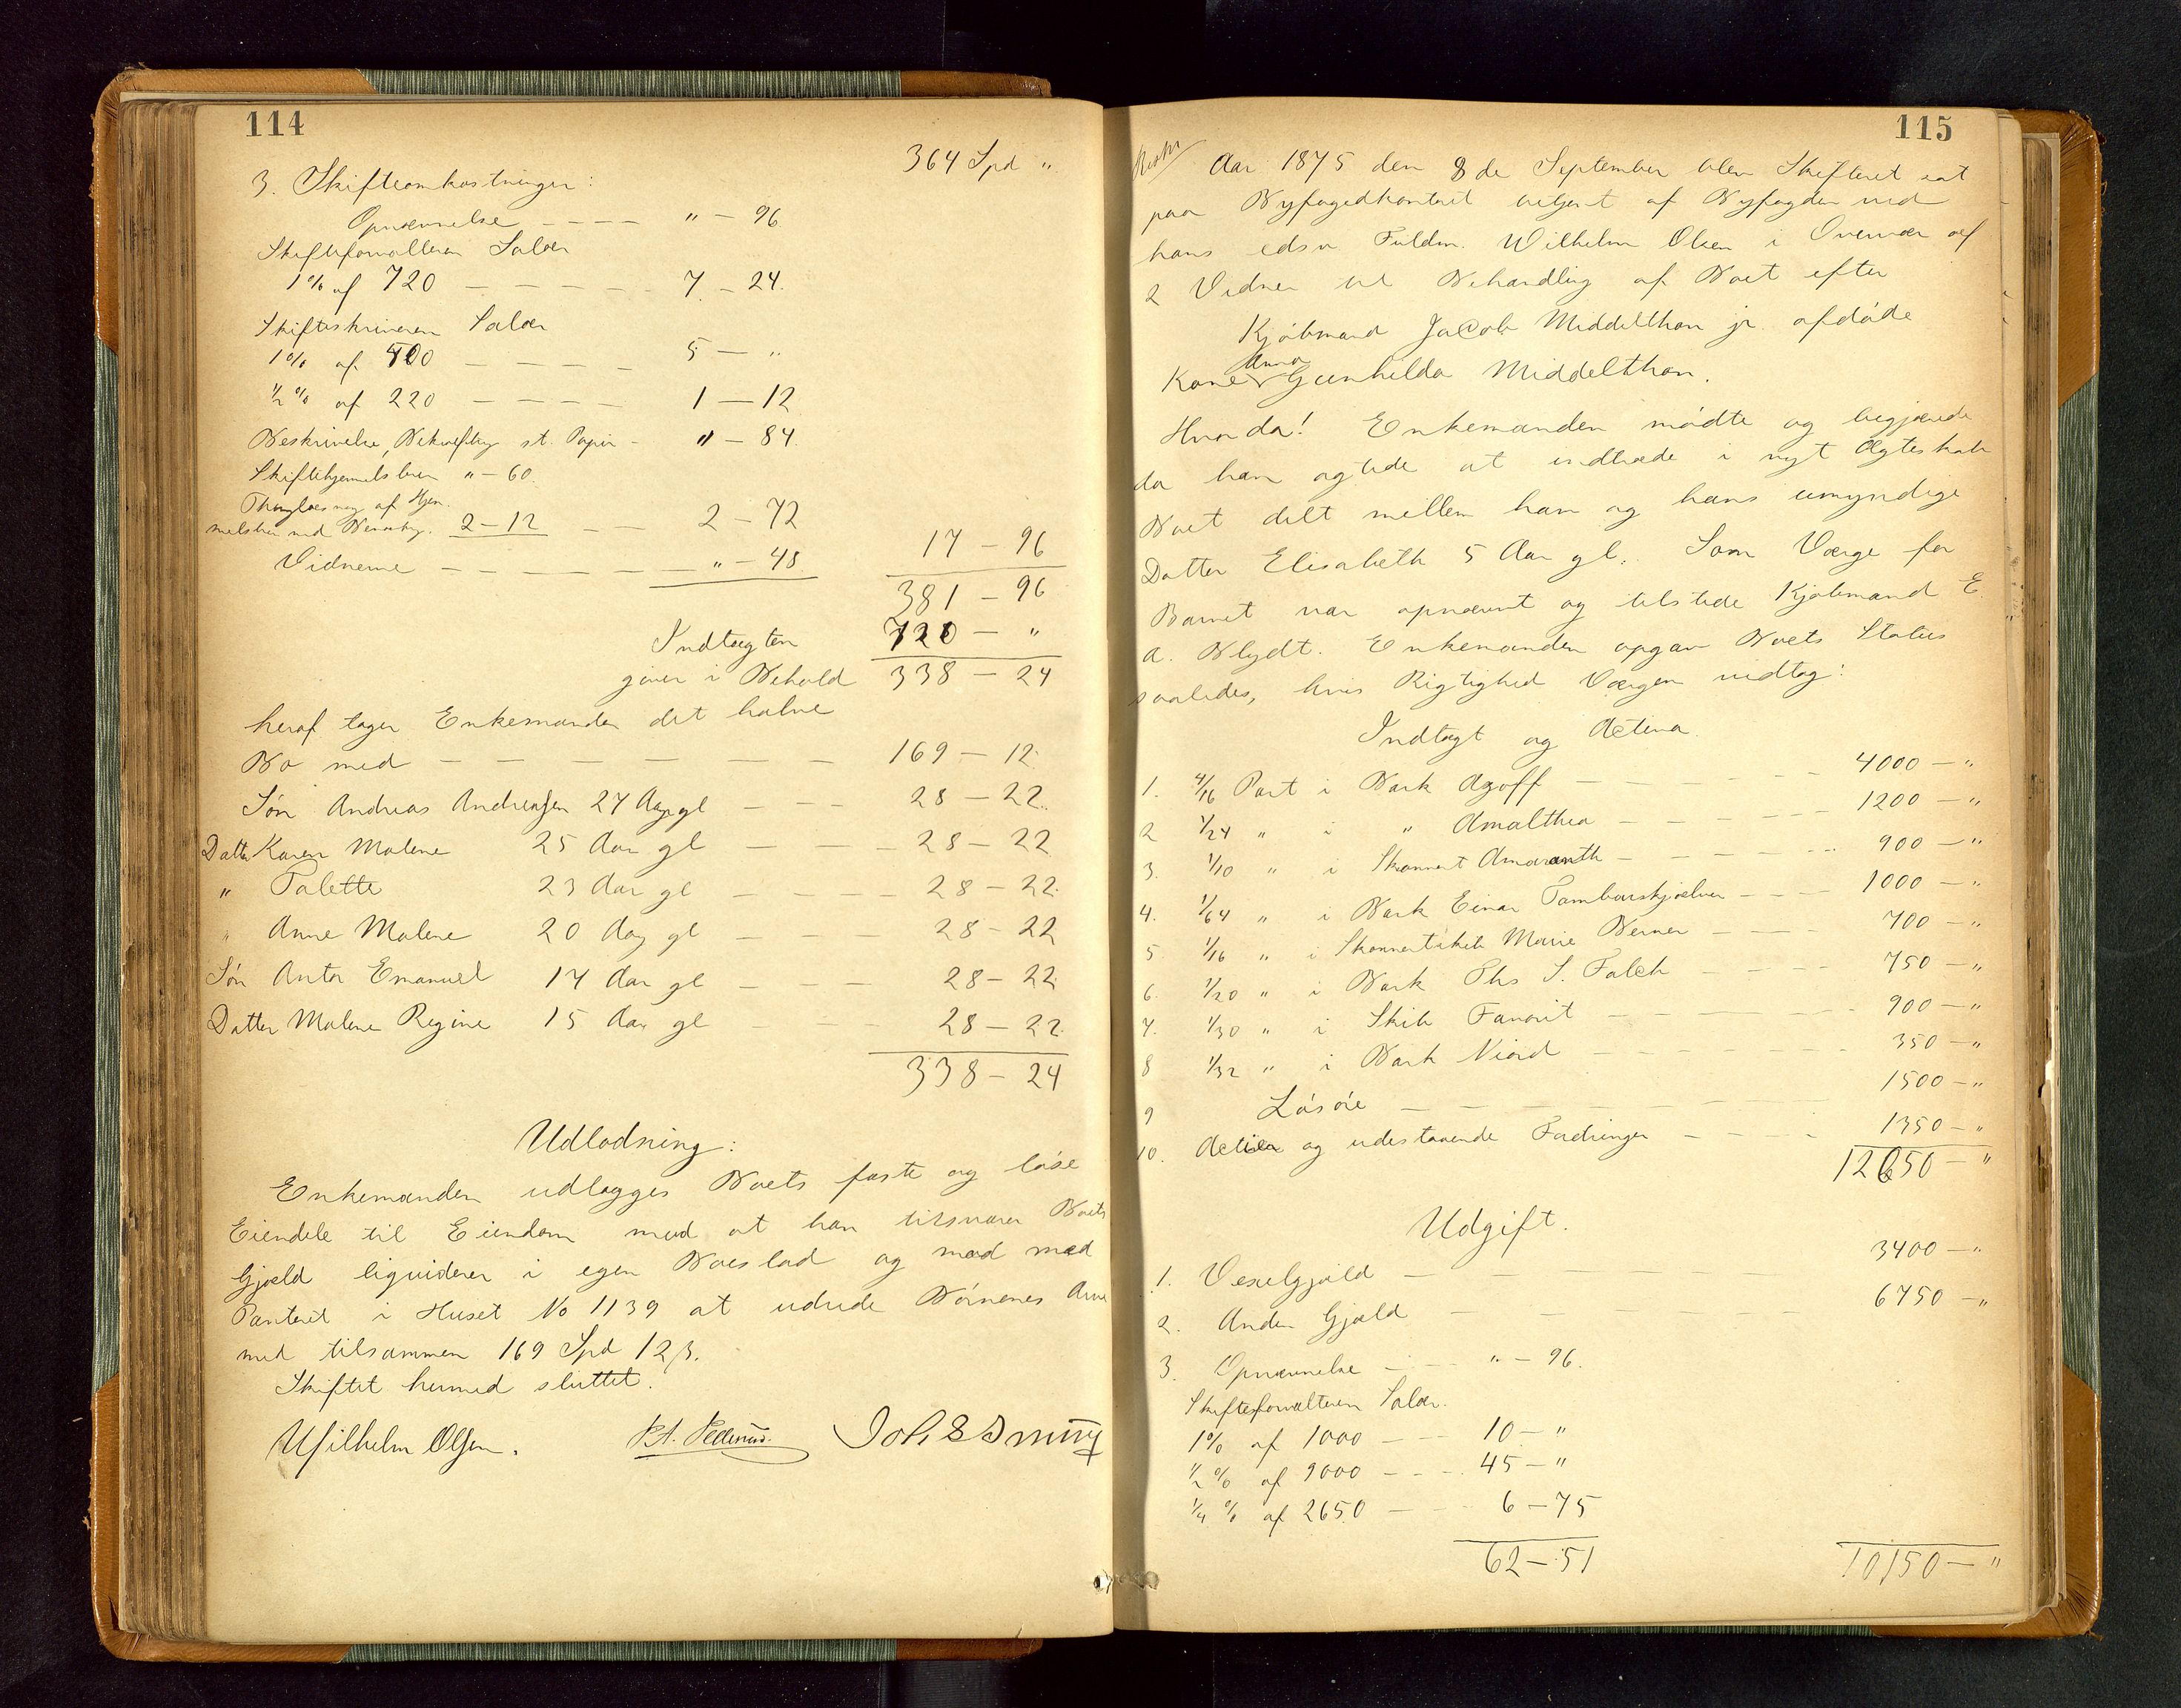 114
364 Spd "
3. Skifteomkostninger:
Opnævnelse - - - - " - 96
Skifteforvalteren Salær
1% af 720 - - - - - - 7 - 24.
Skifteskriveren Salær
1% af 500 - - - - 5 - "
½% af 220 - - - - 1 - 12
Beskrivelse, Bekræftelse st. Papir - " - 84
Skiftehjemmelsbrev " - 60.
Thinglæsning af Hjem-
melsbrev med Bevidn. 2 - 12 - - 2 - 72
Vidnerne - - - - - - " - 48
17 - 96
381 - 96
Indtægten 720 - "
giver i Behold 338 - 24
heraf tager Enkemanden det halve
Bo med - - - - - - - 169 - 12.
Søn Andreas Andreassen 27 Aar gl - - - 28 - 22.
Datter Karen Malene 25 Aar gl - - - - 28 - 22
" Talette 23 Aar gl - - - - 28 - 22.
" Anne Malene 20 Aar gl - - - 28 - 22
Søn Anton Emanuel 17 Aar gl - - - 28 - 22
Datter Malene Regine 15 Aar gl - - 28 - 22.
338 - 24
Udlodning:
Enkemanden udlægges Boets faste og løse
Eiendele til Eiendom mod at han tilsvarer Boets
Gjæld liquiderer i egen Boeslod og mod med
Panteret i Huset No 1139 at udrede Børnenes Arv
med tilsammen 169 Spd 12 ß.
Skiftet hermed sluttet.
Wilhelm Olsen. P. A. Pedersen Joh S Smith
115
Beskr
Aar 1875 den 8de September blev Skifteret sat
paa Byfogedkontoret betjent af Byfogden ved
hans edsv. Fuldm. Wilhelm Olsen i Overvær af
2 Vidner til Behandling af Boet efter
Kjøbmand Jacob Middelthon jr. afdøde
Kone Anna Gunhilda Middelthon.
Hvorda! Enkemanden mødte og begjærede
da han agtede at indtræde i nyt Ægteskab
Boet delt mellem ham og hans umyndige
Datter Elisabeth 5 Aar gl. Som Værge for
Barnet var opnævnt og tilstede Kjøbmand E.
A. Blydt. Enkemanden opgav Boets Status
saaledes, hvis Rigtighed Værgen vedtog:
Indtægt og Activa.
1. 4/16 Part i Bark Azoff - - - - 4000 - "
2 1/24 " i " Amalthea - - - - - - 1200 - "
3. 1/10 " i Skonnert Amaranth - - - - - - 900 - "
4. 1/64 " i Bark Einar Tambarskjælver - - - - 1000 - "
5 1/16 " i Skonnertskib Marie Berner - - - - 700 - "
6. 1/20 " i Bark Ths S. Falck - - - - 750 - "
7. 1/30 " i Skib Favorit - - - - - 900 - "
8 1/32 " i Bark Niord - - - - - - 350 - "
9 Løsøie - - - - - - - - 1500 - "
10. Actier og udestaaende Fordringer - - - - 1350 - "
12650 - "
Udgift.
1. Vexelgjæld - - - - - - - 3400 - "
2. Anden Gjæld - - - - - - 6750 - "
3. Opnævnelse - - - " - 96.
Skifteforvalteren Salær.
1% af 1000 - - - 10 - "
½% af 9000 - - - 45 - "
¼% af 2650 - - - 6 - 75
62 - 51 10150 - "